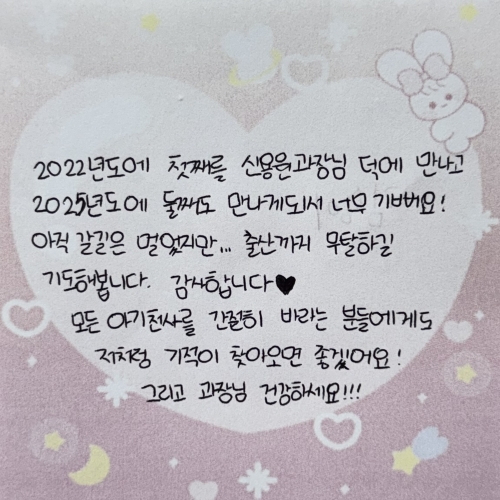 2022년도에 첫째를 신용원과장님 덕에 만나고
2025년도에 둘째도 만나게되서 너무 기뻐요!
아직 갈길은 멀었지만... 출산까지 무탈하길
기도해봅니다. 감사합니다♥
모든 아기천사를 간절히 바라는 분들에게도
저처럼 기적이 찾아오면 좋겠어요!
그리고 과장님 건강하세요!!!